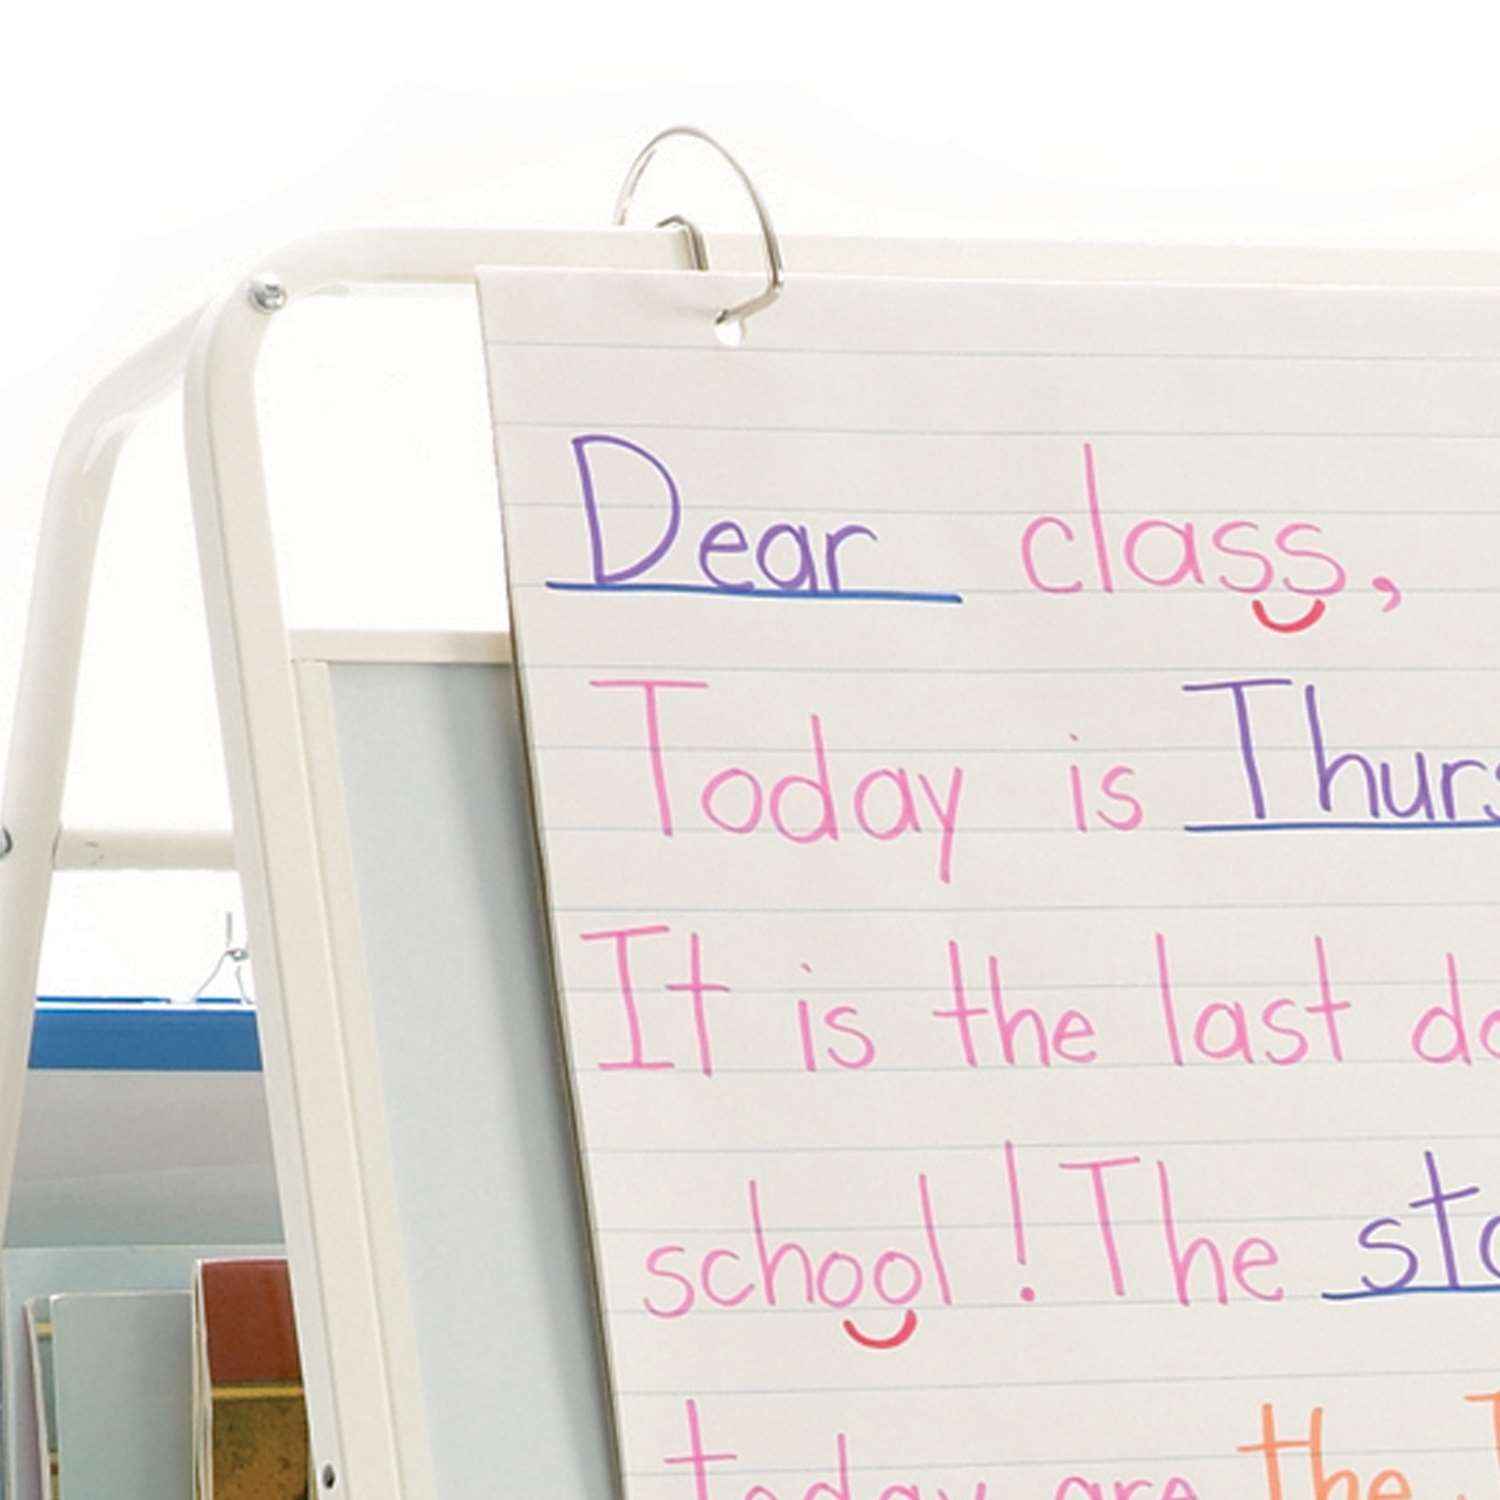 Dear class,
Today is
It is the last
school! The
today are the